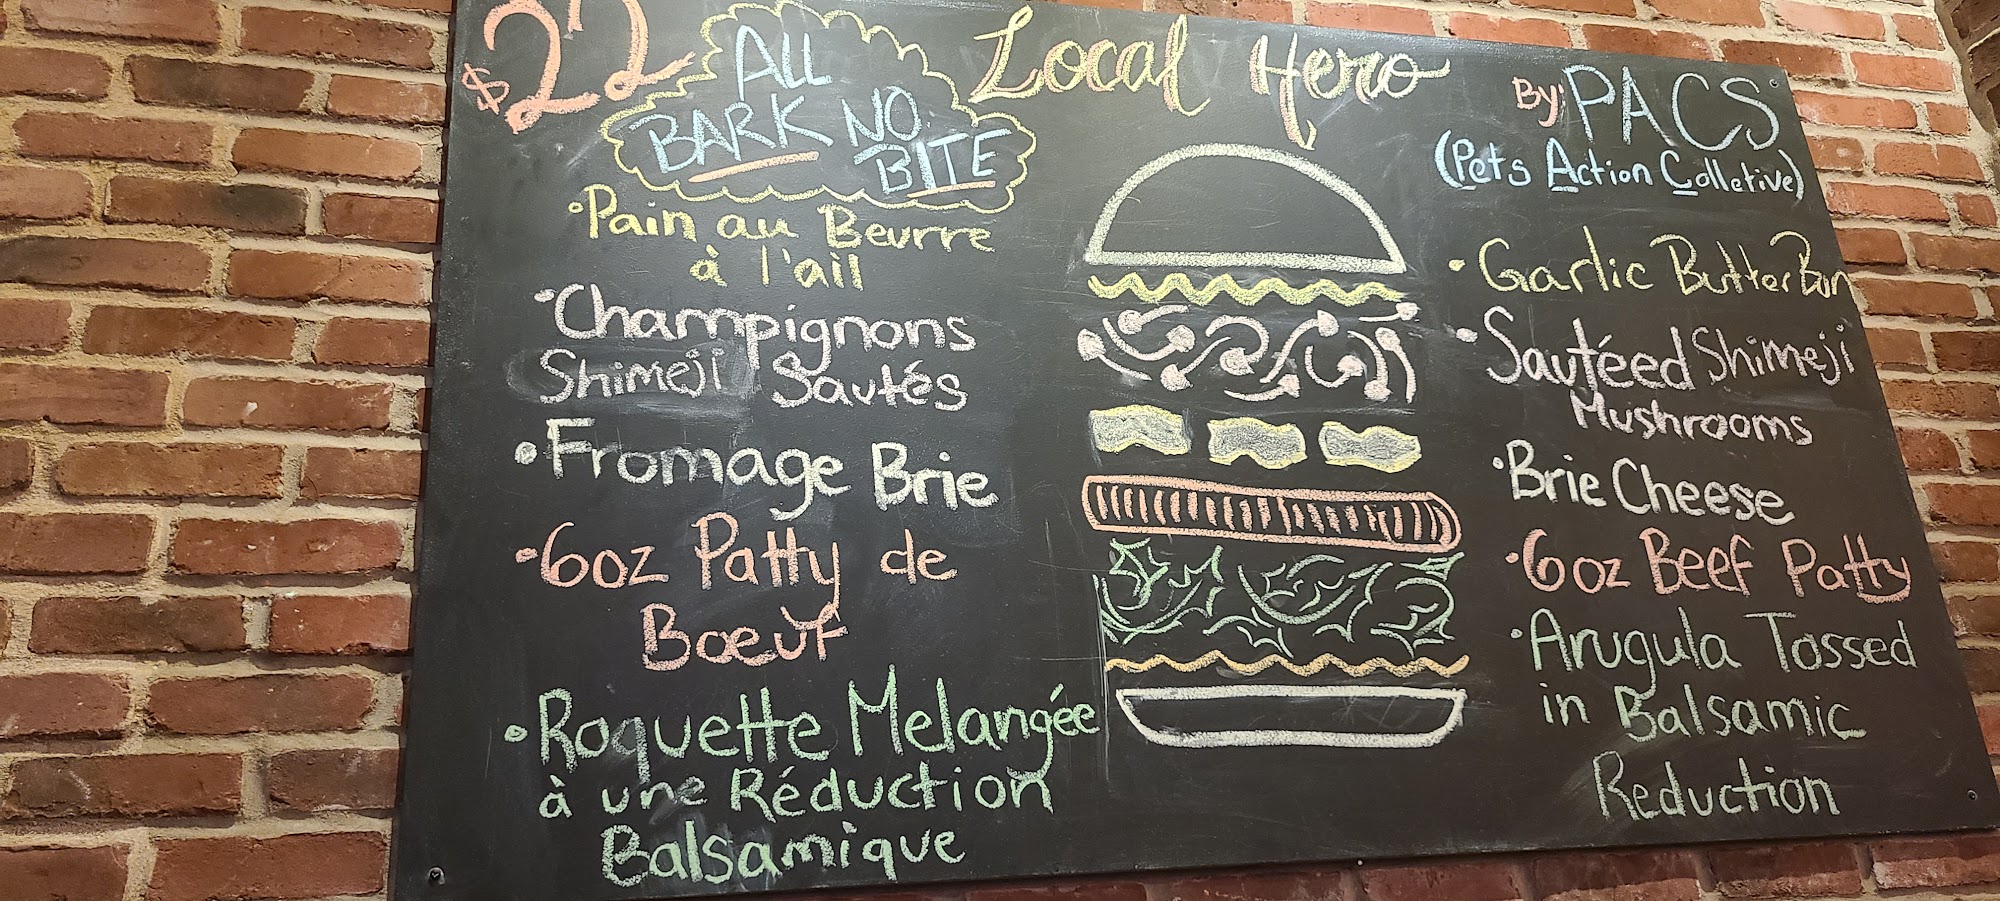 $22
ALL
BARK NO
BITE
Local Hero
By: PACS
(Pets Action Colletive)
•Pain au Beurre
à l'ail
•Champignons
Shimeji Sautés
•Fromage Brie
•6oz Patty de
Bœuf
•Roquette Melangée
à une Réduction
Balsamique
•Garlic Butter Bun
•Sautéed Shimeji
Mushrooms
•Brie Cheese
•6oz Beef Patty
•Arugula Tossed
in Balsamic
Reduction